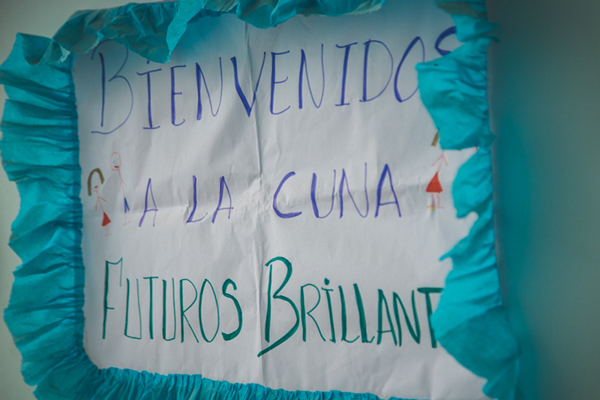 BIENVENIDOS
A LA CUNA
FUTUROS BRILLANT